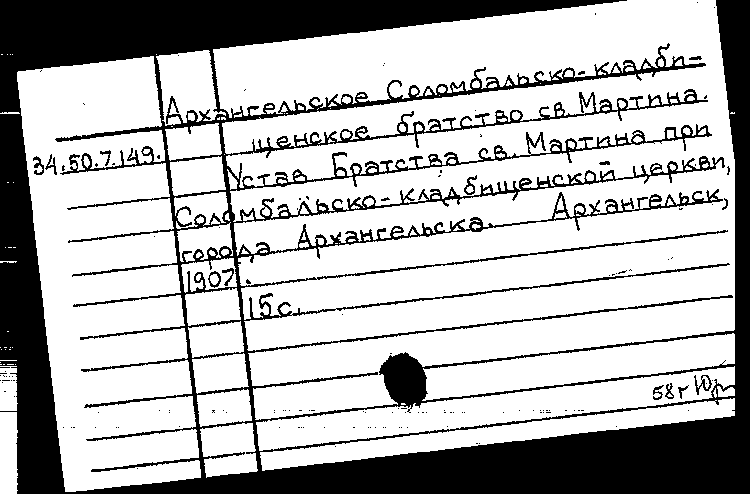 Архангельское Соломбальско-кладби-
щенское братство св. Мартина.
34.50.7.149.
Устав Братства св. Мартина при
Соломбальско-кладбищенской церкви,
города Архангельска. Архангельск,
1907.
15с.
58г